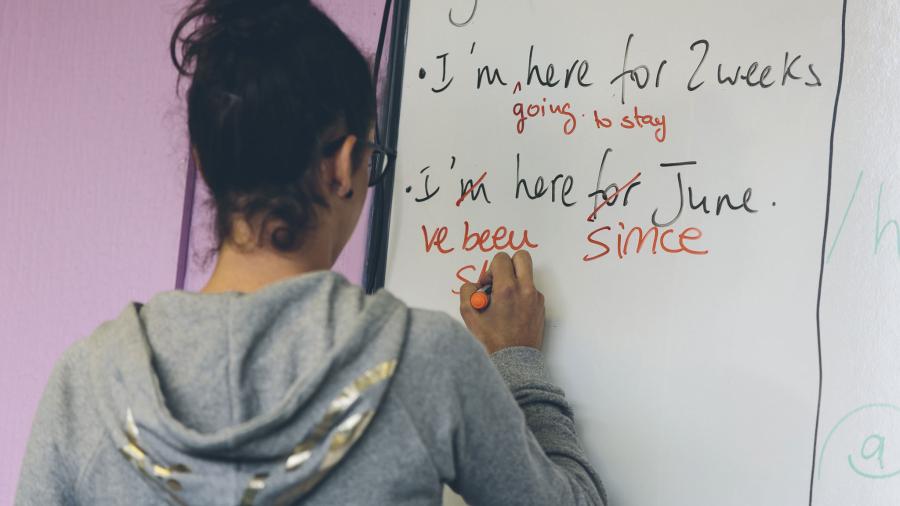 • I'm ‸ here for 2 weeks
going to stay
• I'm here for June.
've been since